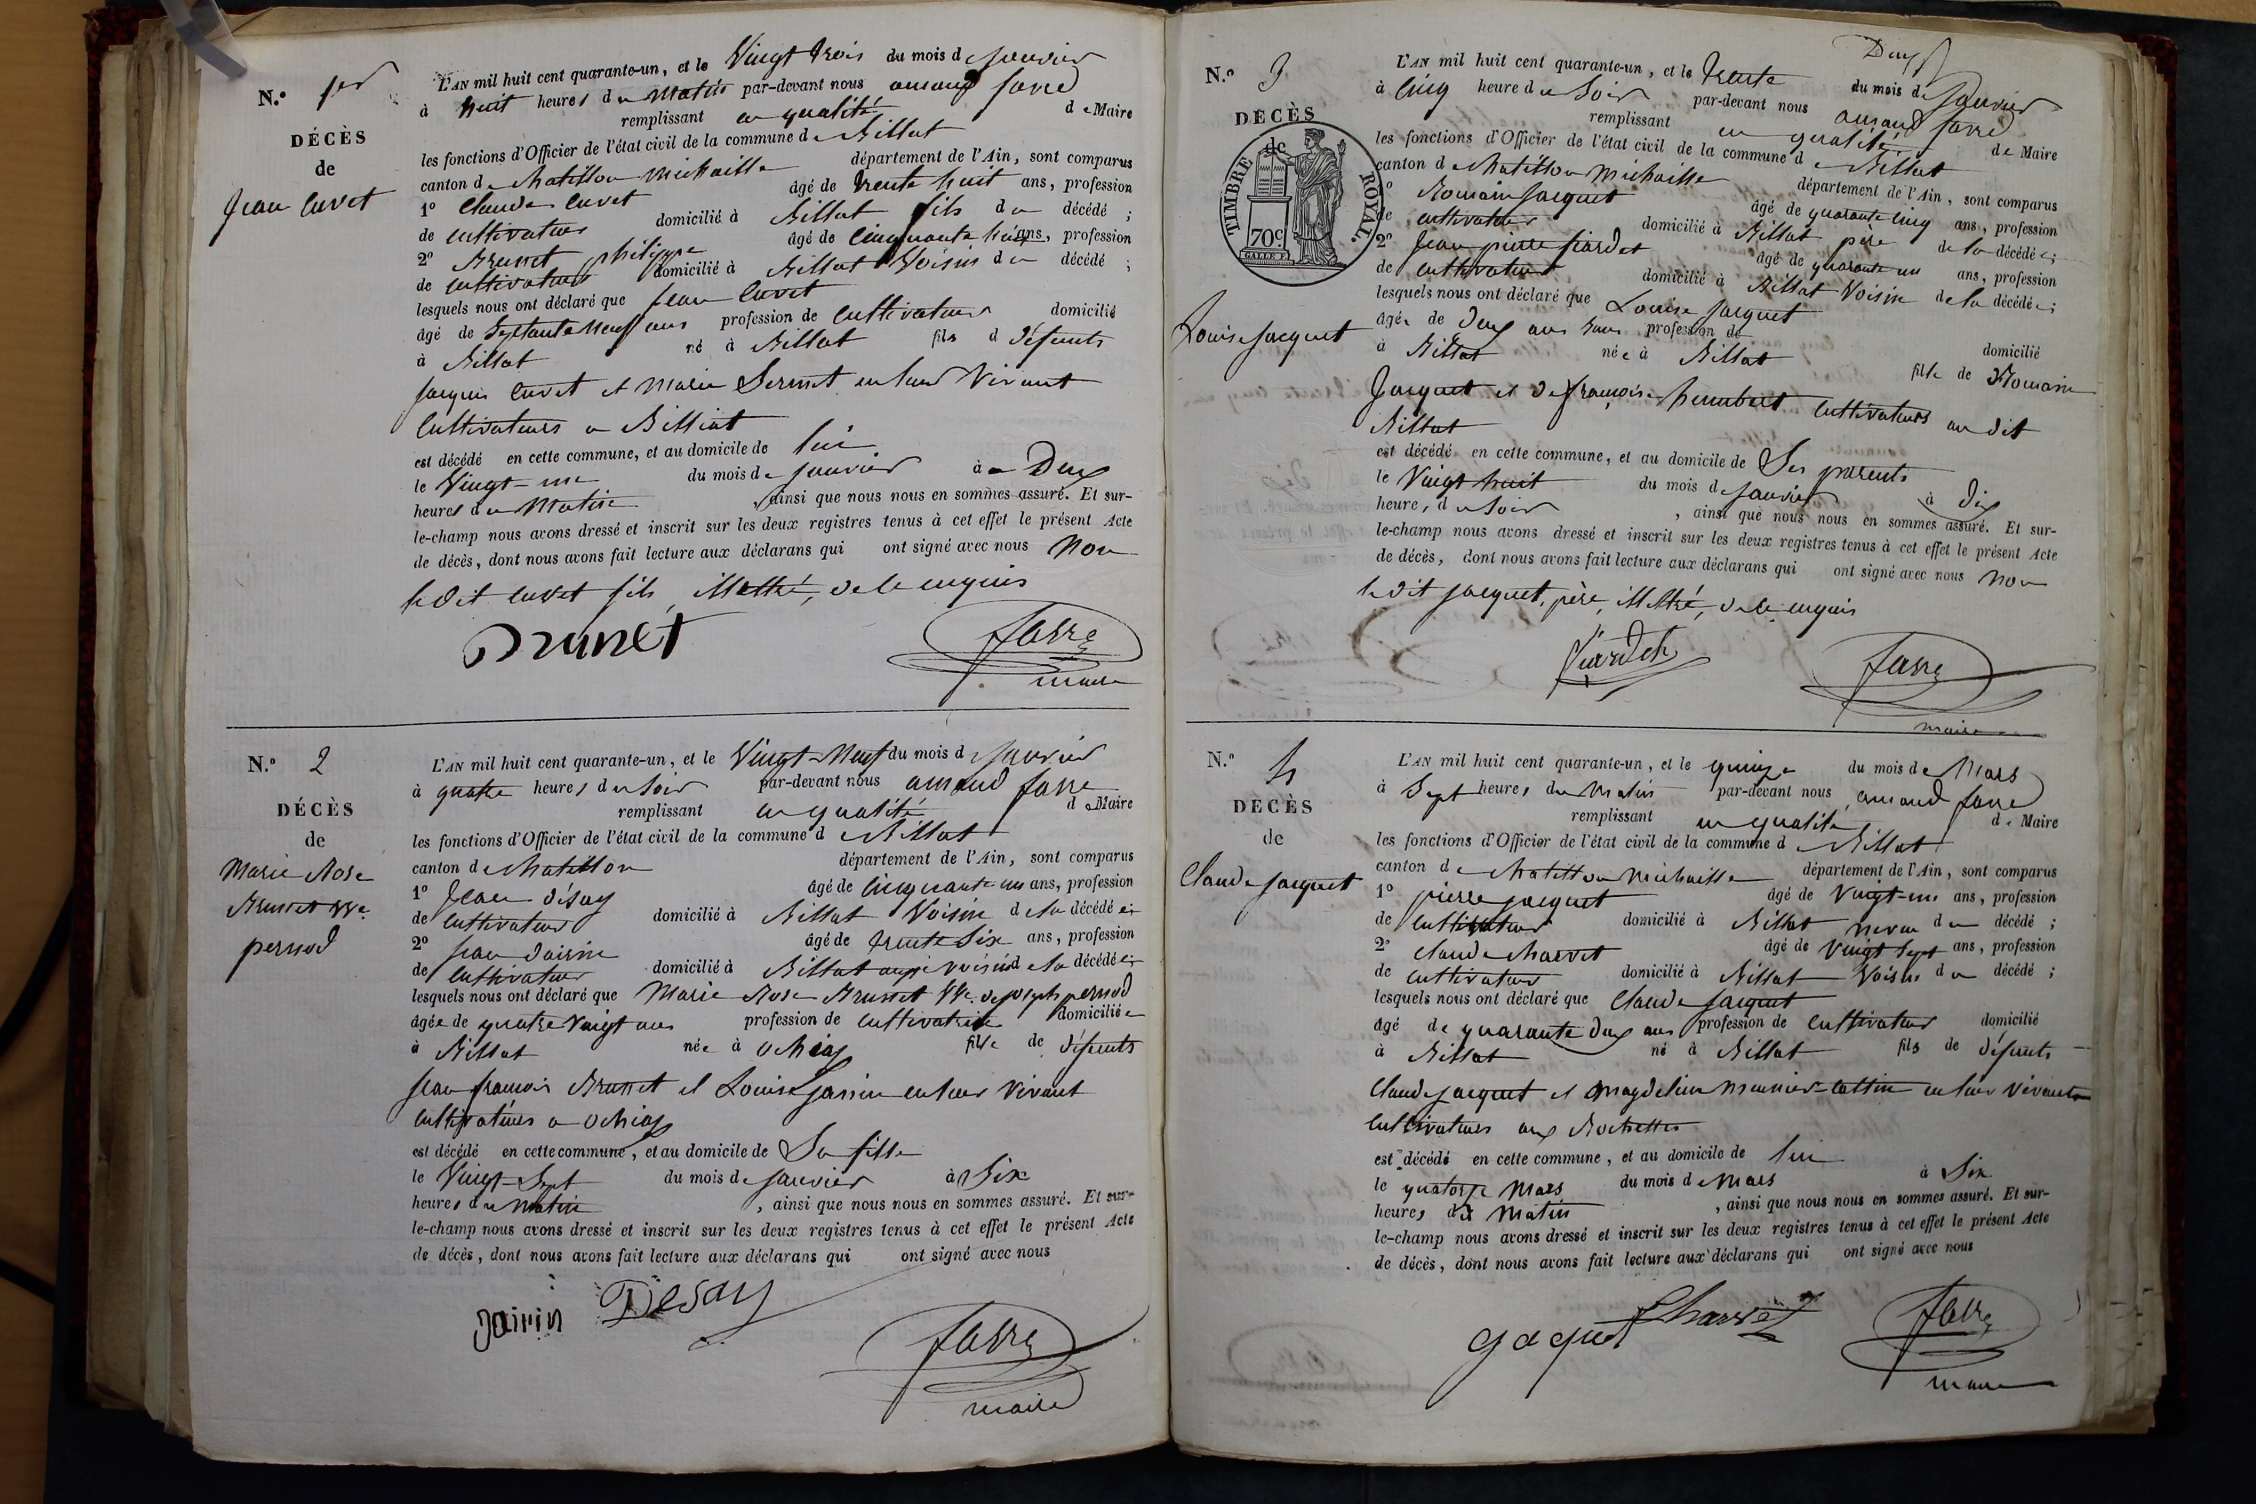 N.º 1er
DÉCÈS
de
Jean Cuvet
L'AN mil huit cent quarante-un, et le Vingt trois du mois de janvier
à huit heures du matin par-devant nous armand favre
remplissant en qualité de Maire
les fonctions d'Officier de l'état civil de la commune de Billiat
canton de Chatillon michaille département de l'Ain, sont comparus
1º Claude Cuvet âgé de trente huit ans, profession
de cultivateur domicilié à Billiat fils du décédé ;
2º Brunet philippe âgé de cinquante huit ans, profession
de cultivateur domicilié à Billiat Voisin du décédé ;
lesquels nous ont déclaré que Jean Cuvet
âgé de septante neuf ans profession de cultivateur domicilié
à Billiat né à Billiat fils d défunts
jacques Cuvet et marie Sermet en leur Vivant
cultivateurs a Billiat
est décédé en cette commune, et au domicile de lui
le Vingt-un du mois de janvier à Deux
heures du matin , ainsi que nous nous en sommes assuré. Et sur-
le-champ nous avons dressé et inscrit sur les deux registres tenus à cet effet le présent Acte
de décès, dont nous avons fait lecture aux déclarans qui ont signé avec nous non
le dit cuvet fils, illettré, de le enquis
Brunet
favre
maire
N.º 2
DÉCÈS
de
Marie Rose
Brunet Vve
pernod
L'AN mil huit cent quarante-un, et le Vingt-Neuf du mois de janvier
à quatre heures du soir par-devant nous armand favre
remplissant en qualité de Maire
les fonctions d'Officier de l'état civil de la commune de Billiat
canton de chatillon département de l'Ain, sont comparus
1º Jean désay âgé de cinquante-un ans, profession
de cultivateur domicilié à Billiat Voisin de la décédée ;
2º jean Jairin âgé de trente six ans, profession
de cultivateur domicilié à Billiat aussi voisin de la décédée ;
lesquels nous ont déclaré que Marie Rose Brunet Vve de joseph pernod
âgée de quatre Vingt ans profession de cultivatrice domiciliée
à Billiat née à ochiaz fille de défunts
jean françois Brunet et Louise en leur Vivant
cultivateurs a ochiaz
est décédé en cette commune, et au domicile de Sa fille
le Vingt-Sept du mois de janvier à Six
heures du matin , ainsi que nous nous en sommes assuré. Et sur-
le-champ nous avons dressé et inscrit sur les deux registres tenus à cet effet le présent Acte
de décès, dont nous avons fait lecture aux déclarans qui ont signé avec nous
Jairin Désay
favre
maire
Deux
N.º 3
DÉCÈS
de
TIMBRE ROYAL.
70c
Louise Jacquet
L'AN mil huit cent quarante-un, et le trente du mois de janvier
à cinq heure du Soir par-devant nous armand favre
remplissant en qualité de Maire
les fonctions d'Officier de l'état civil de la commune de Billiat
canton de Chatillon Michaille département de l'Ain, sont comparus
1º Romain Jacquet âgé de quarante cinq ans, profession
de cultivateur domicilié à Billiat père de la décédée ;
2º Jean pierre âgé de quarante un ans, profession
de cultivateur domicilié à Billiat Voisin de la décédée ;
lesquels nous ont déclaré que Louise Jacquet
âgée de Deux ans sans profession de domicilié
à Billiat née à Billiat fille de Romain
Jacquet et de françoise humbert cultivateurs au dit
Billiat
est décédé en cette commune, et au domicile de Ses parents
le Vingt huit du mois de janvier à dix
heure, du soir , ainsi que nous nous en sommes assuré. Et sur-
le-champ nous avons dressé et inscrit sur les deux registres tenus à cet effet le présent Acte
de décès, dont nous avons fait lecture aux déclarans qui ont signé avec nous non
le dit jacquet, père, illettré, de le enquis
favre
maire
N.º 4
DÉCÈS
de
Claude jacquet
L'AN mil huit cent quarante-un, et le quinze du mois de Mars
à Sept heures du matin par-devant nous armand favre
remplissant en qualité de Maire
les fonctions d'Officier de l'état civil de la commune de Billiat
canton de Chatillon michaille département de l'Ain, sont comparus
1º pierre jacquet âgé de Vingt-un ans, profession
de cultivateur domicilié à Billiat neveu du décédé ;
2º Claude charvet âgé de Vingt sept ans, profession
de cultivateur domicilié à Billiat Voisin du décédé ;
lesquels nous ont déclaré que Claude jacquet
âgé de quarante deux ans profession de cultivateur domicilié
à Billiat né à Billiat fils de défunts
Claude jacquet et Magdeleine meunier-cattin en leur vivants
cultivateurs aux Rochettes
est décédé en cette commune, et au domicile de lui
le quatorze Mars du mois de Mars à Six
heures du matin , ainsi que nous nous en sommes assuré. Et sur-
le-champ nous avons dressé et inscrit sur les deux registres tenus à cet effet le présent Acte
de décès, dont nous avons fait lecture aux déclarans qui ont signé avec nous
gaquet Charvet
favre
maire